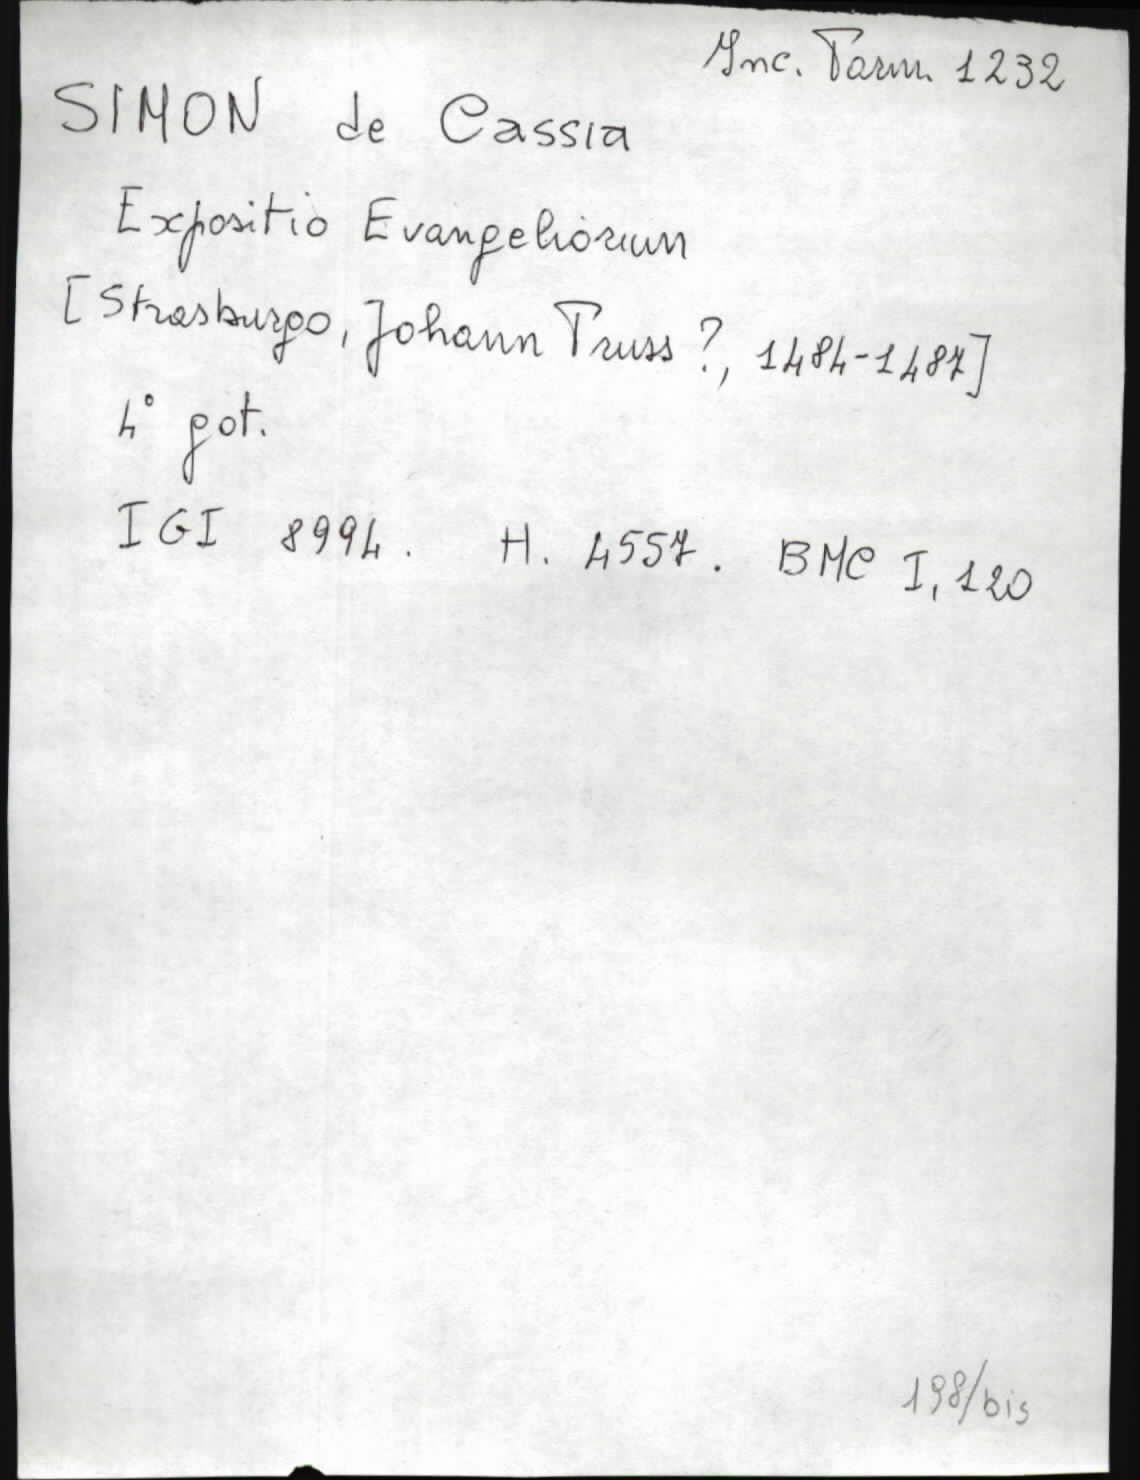 Inc. Parm. 1232
SIMON de Cassia
Expositio Evangeliorum
[Strasburgo, Johann Pruss ?, 1484-1487]
4° got.
IGI 8994. H. 4557. BMC I, 120
198/bis